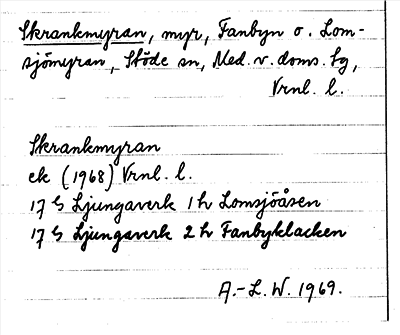 Skrankmyran, myr, Fanbyn o. Lom-
sjömyran, Stöde sn, Med. v. doms. tg,
Vrnl. l.
Skrankmyran
ek (1968) Vrnl. l.
17 G Ljungaverk 1 h Lomsjöåsen
17 G Ljungaverk 2 h Fanbyklacken
A.-L. W. 1969.